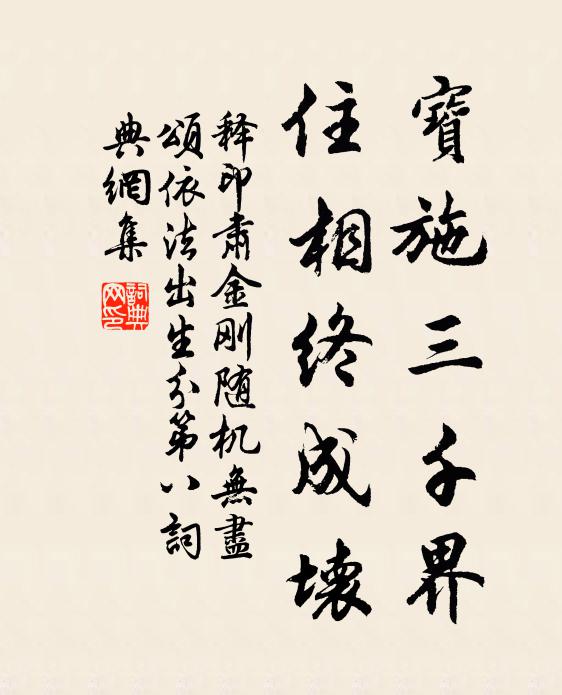 寶施三千界
住相終成壞
释印肅金刚随机無盡
頌依法出生分第八詞
典網集
詞典网印